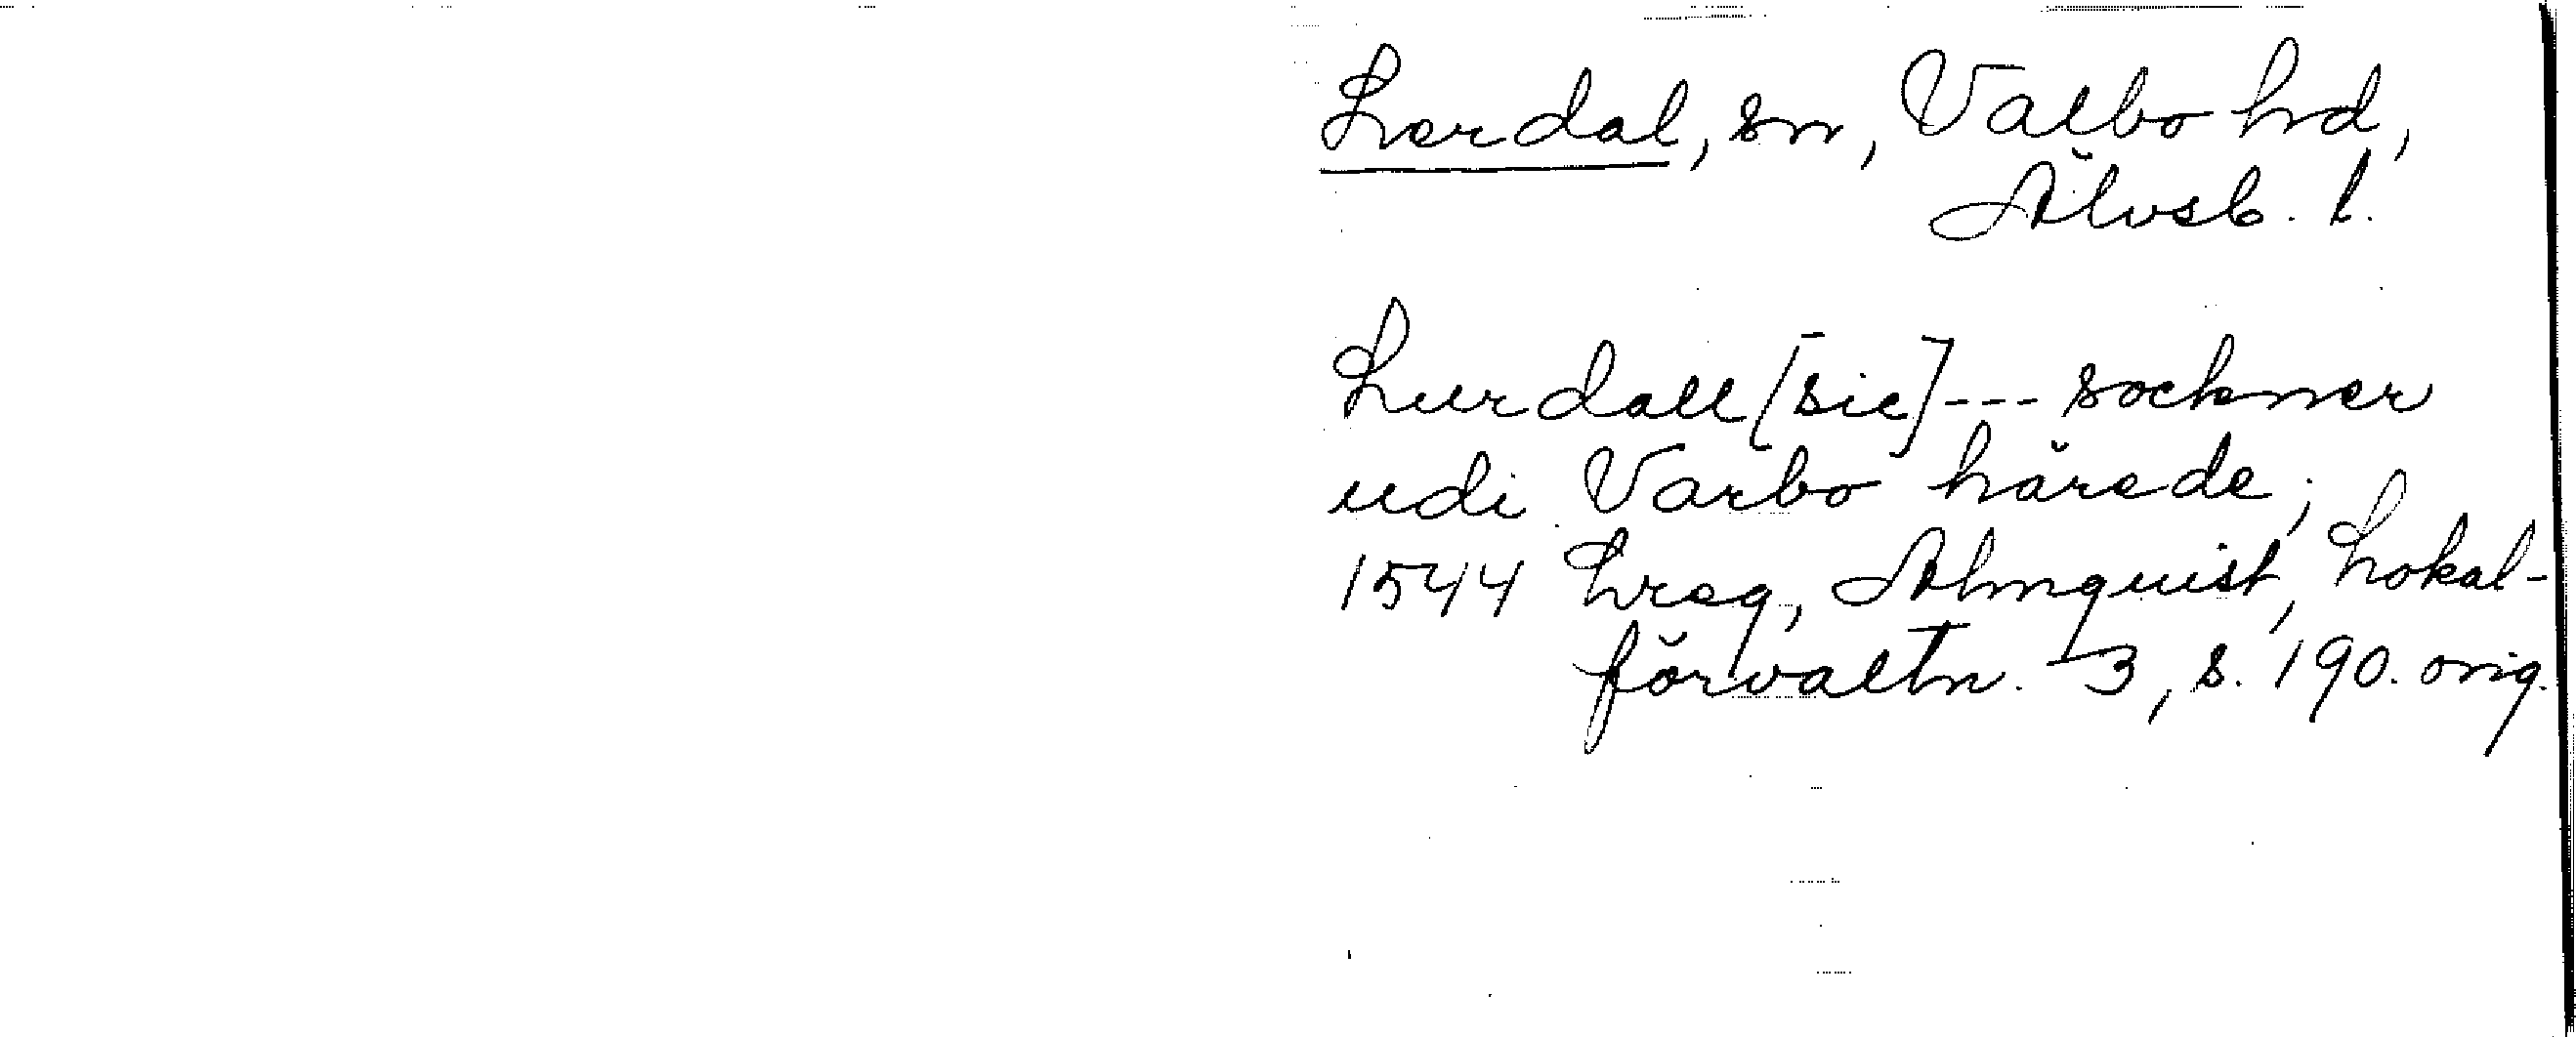 Lerdal, sn, Valbo hd,
Älvsb. l.
Lurdall [sic] --- sockner
udi Varbo härede;
1544 Lreg, Almquist, Lokal-
förvaltn. 3, s. 190. orig.